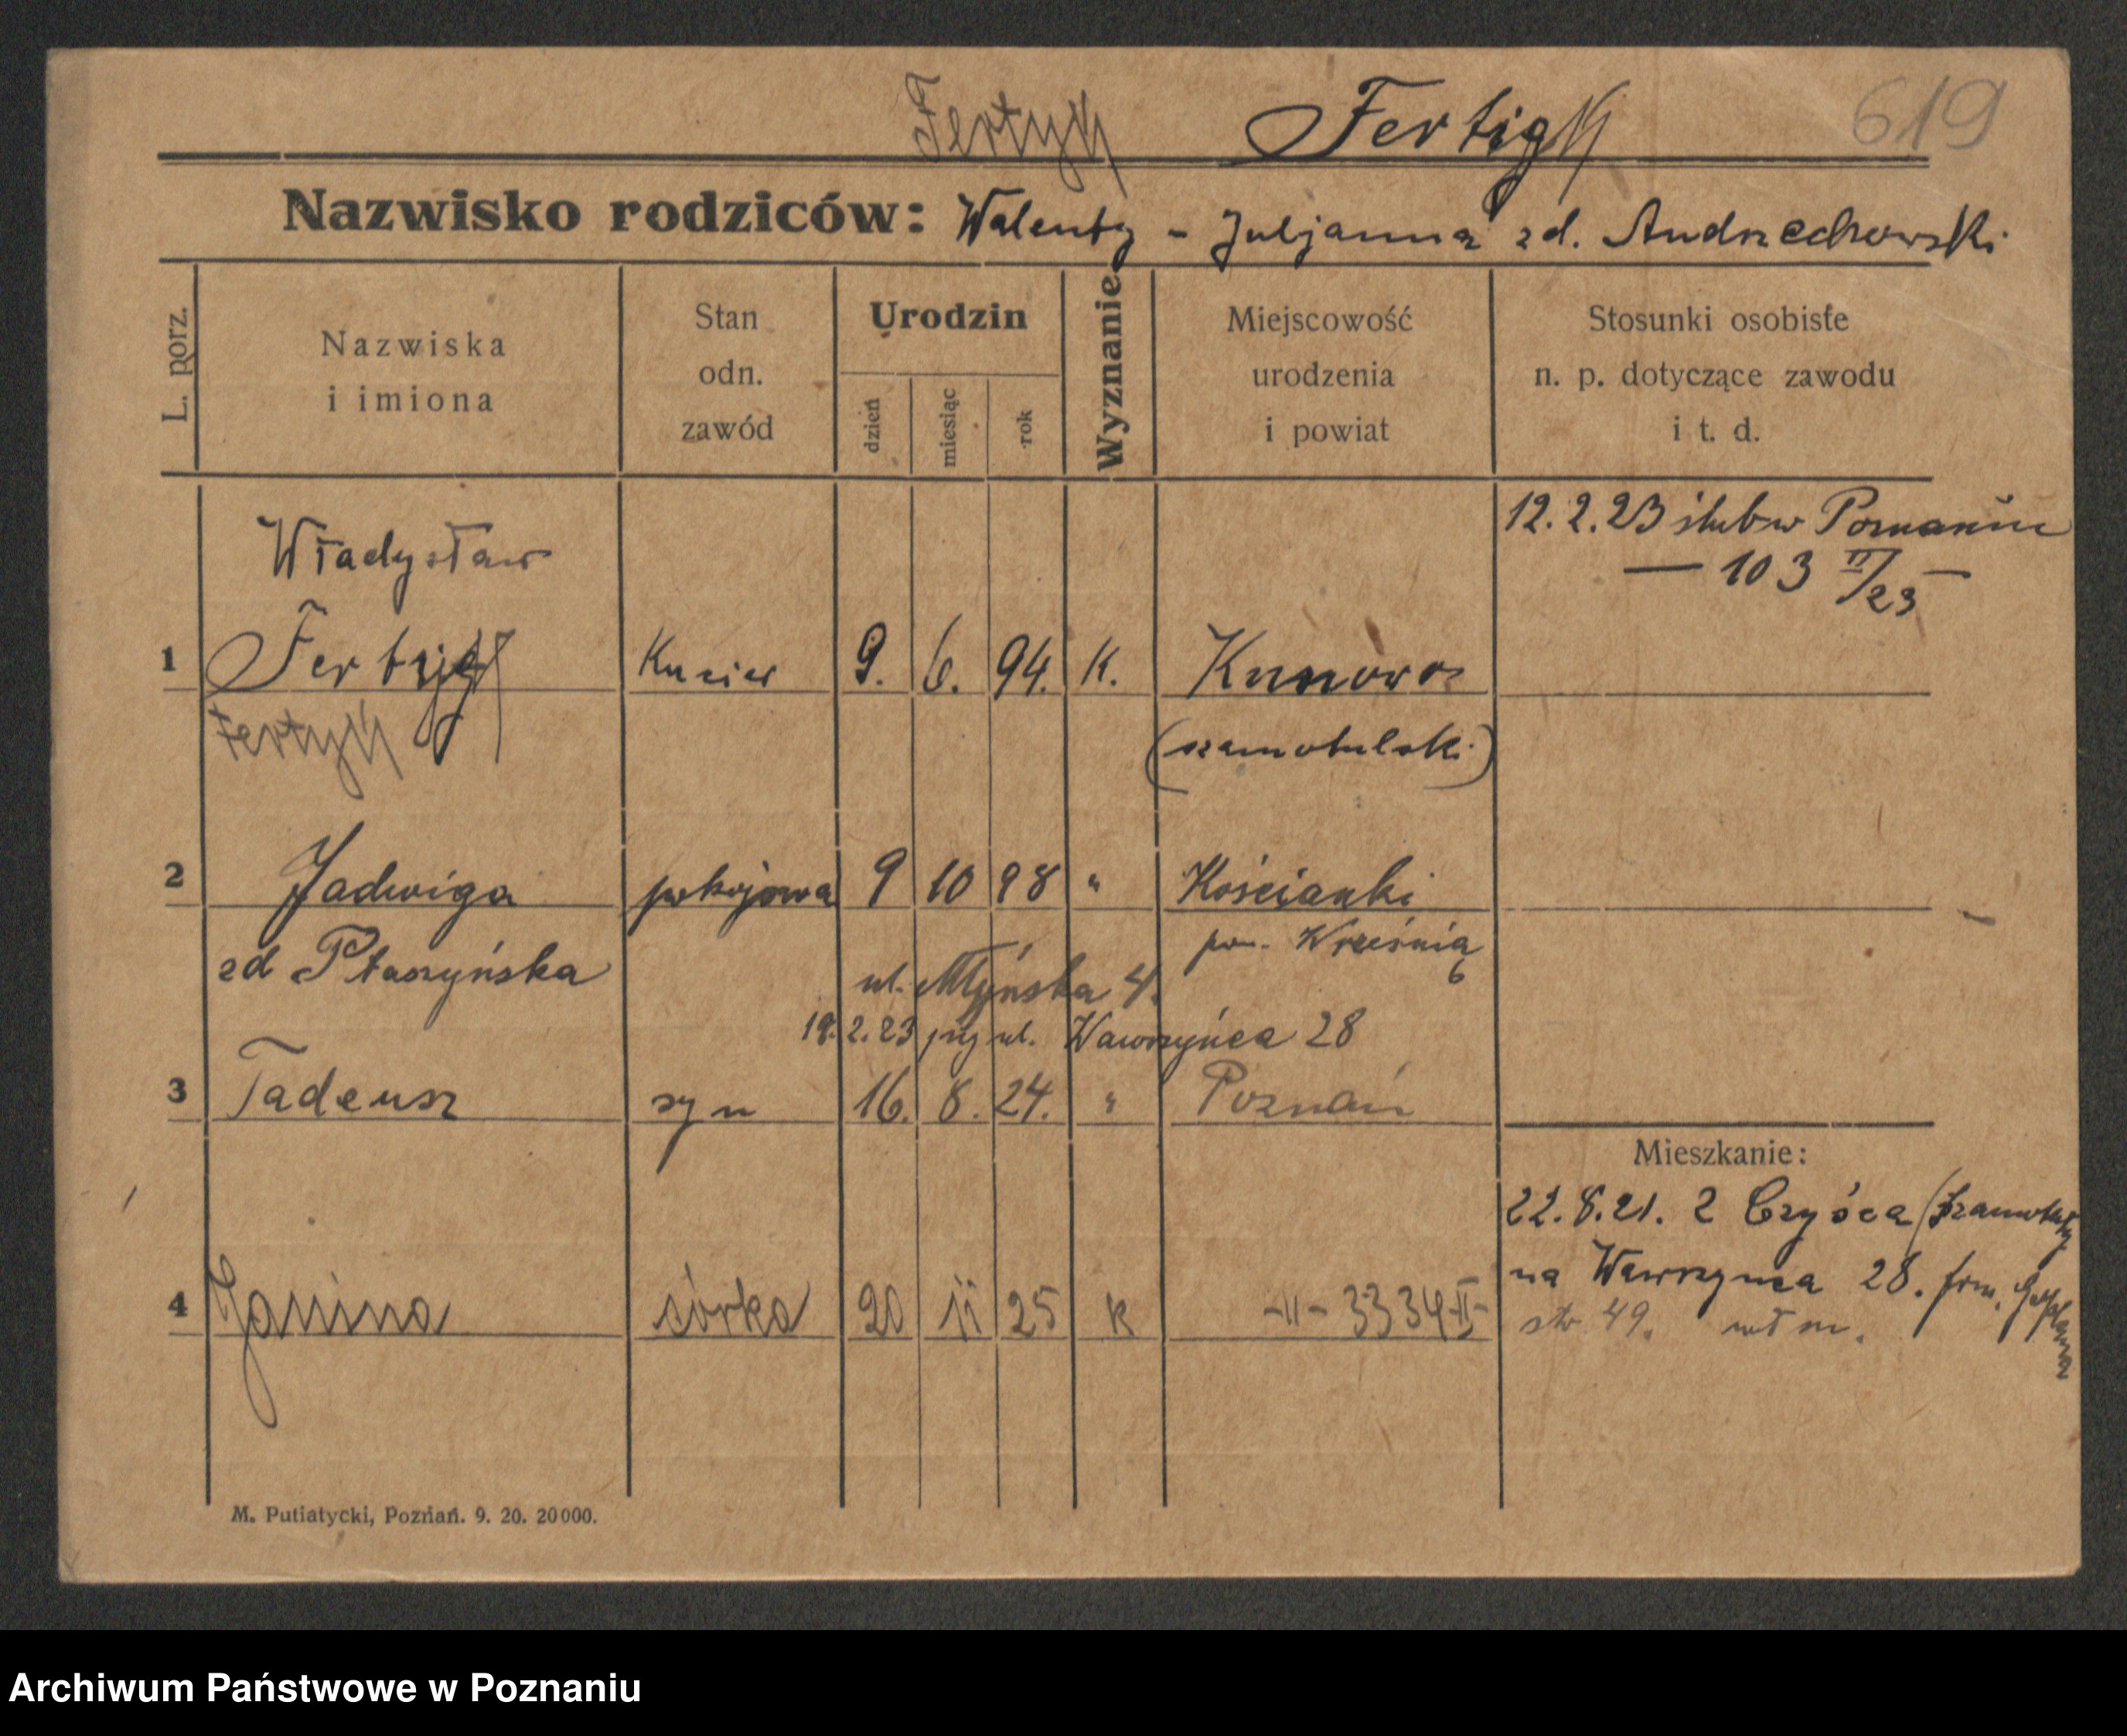 Fertyk Fertig 619
Nazwisko rodziców: Walenty - Juljanna zd. Andrzechowski
L. porz.
Nazwiska
i imiona
Stan
odn.
zawód
Urodzin
dzień
miesiąc
rok
Wyznanie
Miejscowość
urodzenia
i powiat
Stosunki osobiste
n. p. dotyczące zawodu
i t. d.
12.2.23 ślub w Poznaniu
— 103 II/23 —
Władysław
1 Fertyk 9. 6. 94. K. Kunowo
Fertyk (szamotulski)
2 Jadwiga pokojowa 9 10 98 " Kościanki
pow. Września
zd Ptaszyńska
ul. Młyńska 4.
2.23 przy ul. Wawrzyńca 28
3 Tadeusz syn 16. 8. 24. " Poznań
Mieszkanie:
22.8.21. z (Szamotuły
na Wawrzyńca 28.
4 Janina córka 20 11 25 k -"- 3334 II
str 49.
M. Putiatycki, Poznań. 9. 20. 20000.
Archiwum Państwowe w Poznaniu